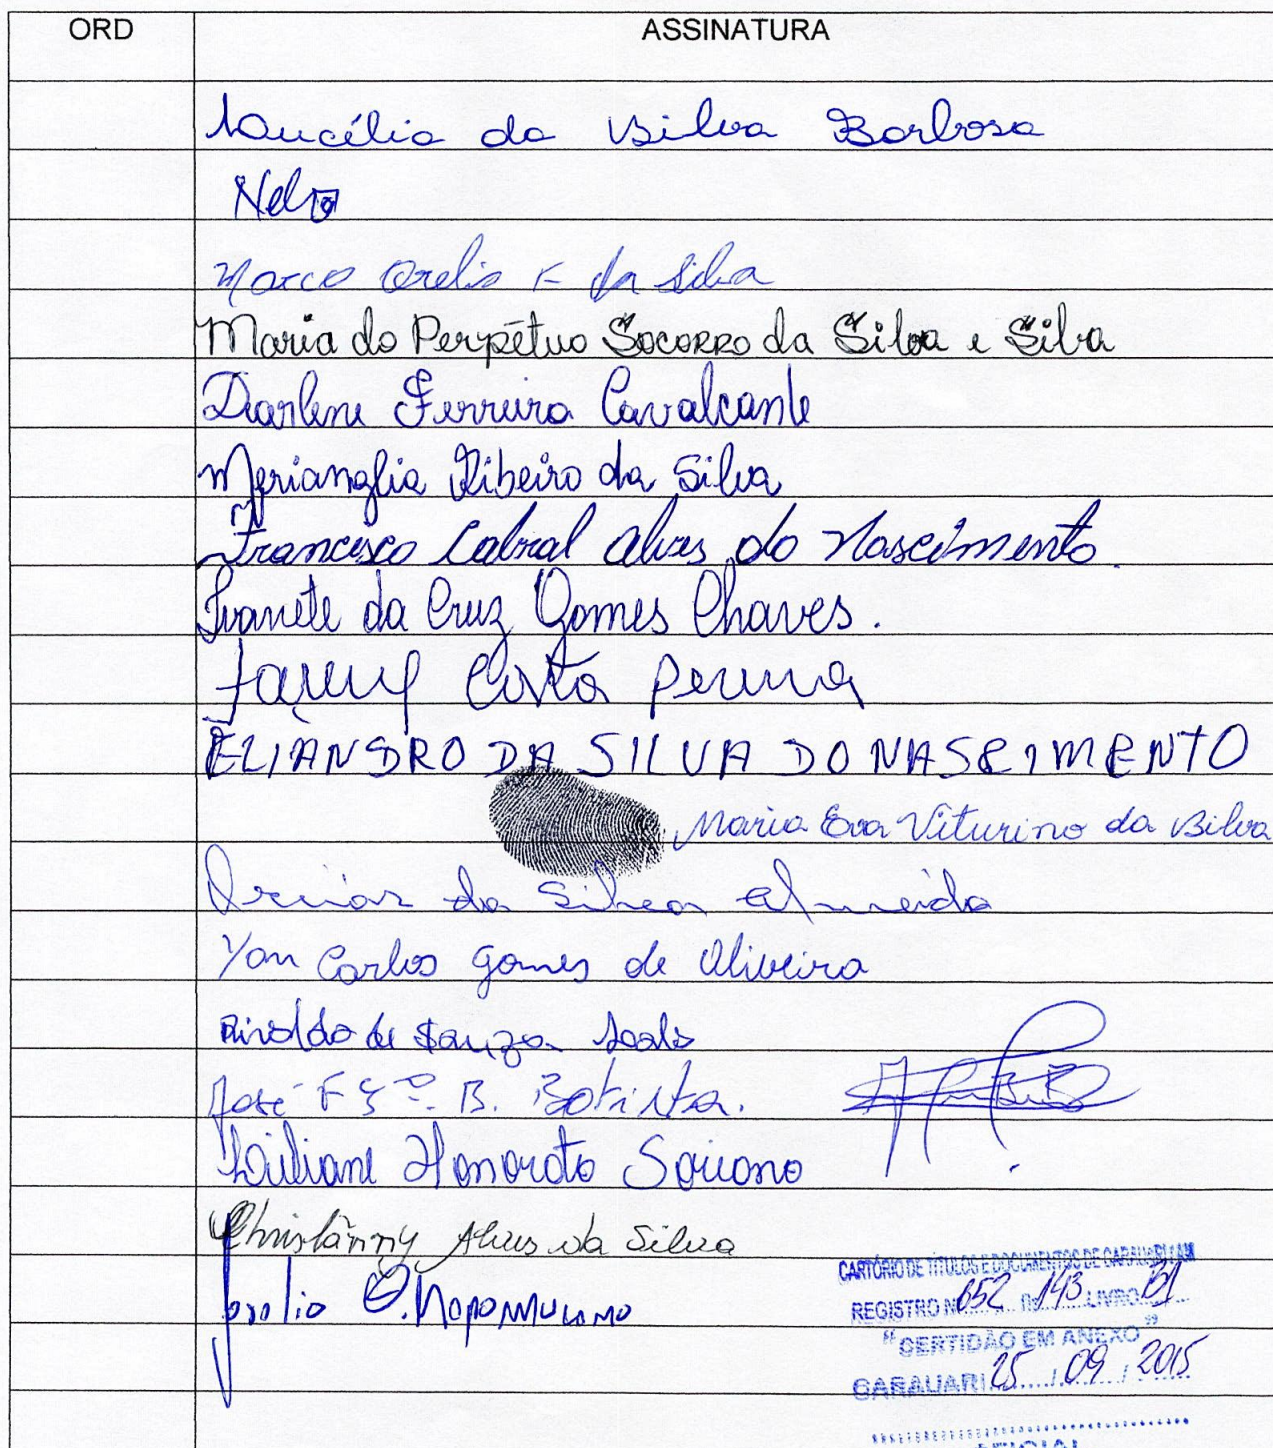 ORD ASSINATURA
Laucélia da Silva Barbosa
Marco Orelio F da Silva
Maria do Perpétuo Socorro da Silva e Silva
Darlene Ferreira Cavalcante
Merianglia Ribeiro da Silva
Francisco Cabral Alves do Nascimento.
Ivanete da Cruz Gomes Chaves.
Costa
ELIANDRO DA SILVA DO NASCIMENTO
Maria Eva Viturino da Silva
da Silva Almeida
Yan Carlos Gomes de Oliveira
de Souza
José B. Batista.
Liliane Honorato Soriano
Christânny Alves da Silva
CARTÓRIO DE TÍTULOS E DOCUMENTOS DE CARAUARI / AM
REGISTRO Nº 652 143 LIVRO B1
"CERTIDÃO EM ANEXO"
CARAUARI 25 / 09 / 2015